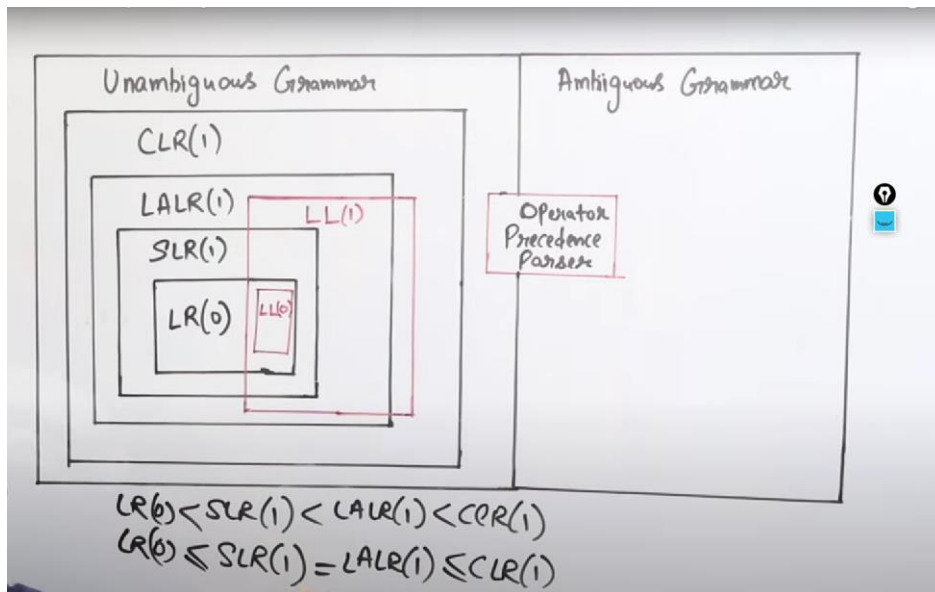 Unambiguous Grammar
Ambiguous Grammar
CLR(1)
LALR(1)
LL(1)
SLR(1)
LR(0)
LL(0)
Operator
Precedence
Parser
LR(0) < SLR(1) < LALR(1) < CLR(1)
LR(0) ≤ SLR(1) = LALR(1) ≤ CLR(1)